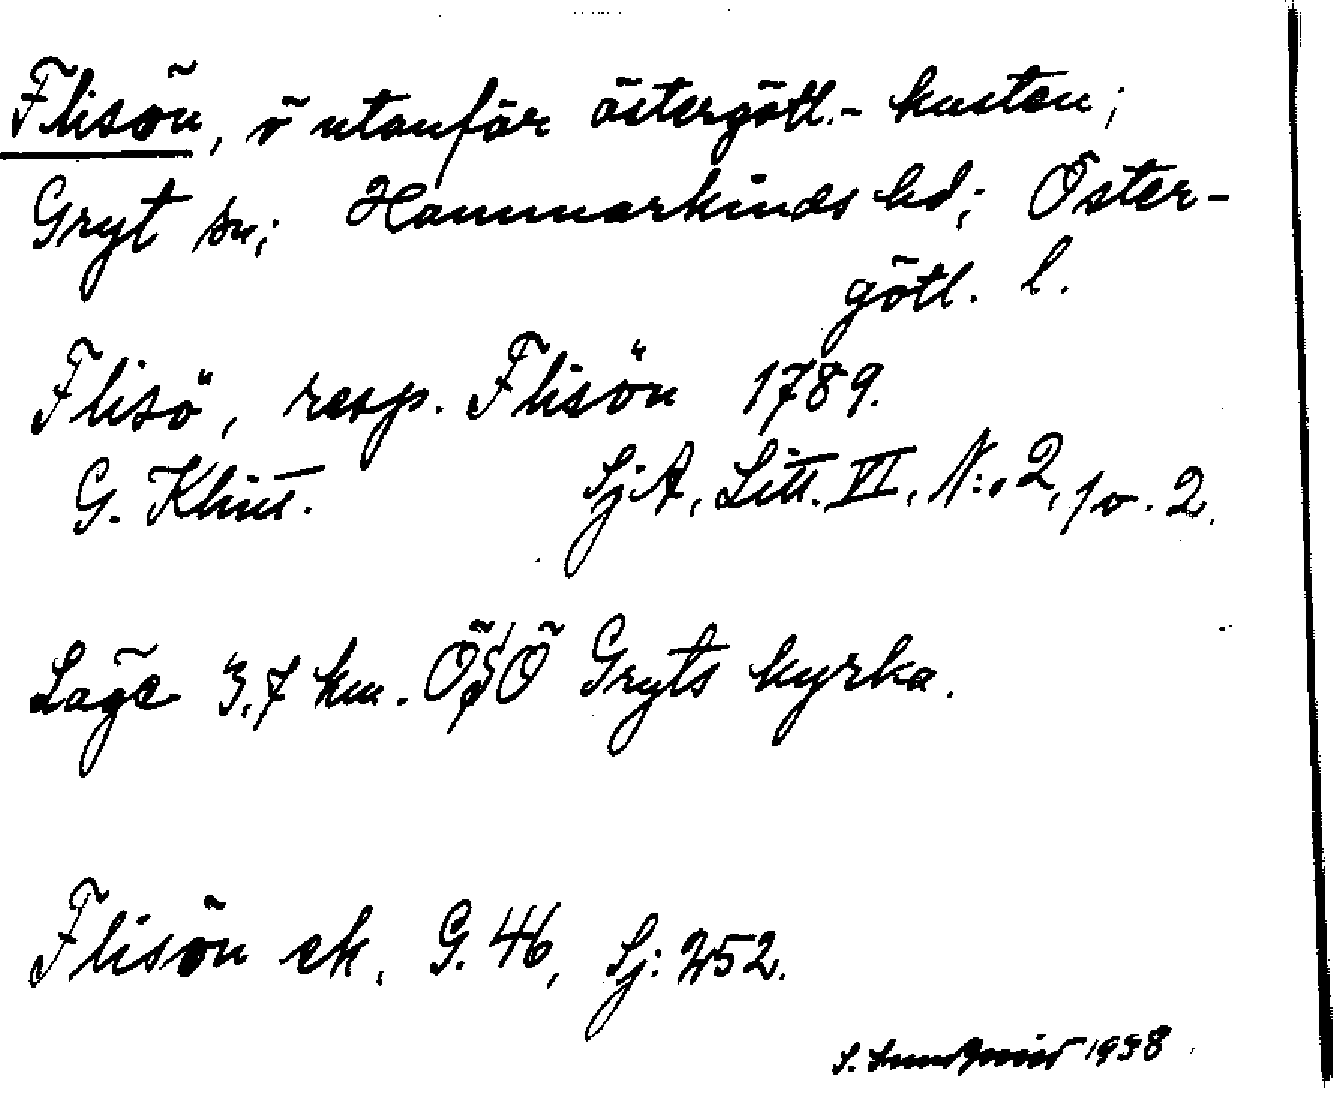 Flisön, ö utanför östergötl.- kusten;
Gryt sn; Hammarkinds hd; Öster-
götl. l.
Flisö, resp. Flisön 1789.
G. Klint. SjA, Litt. VI, N:o 2, fo. 2.
Läge 3,7 km. ÖSÖ Gryts kyrka.
Flisön ek. G. 46, Sj: 252.
S. 1938